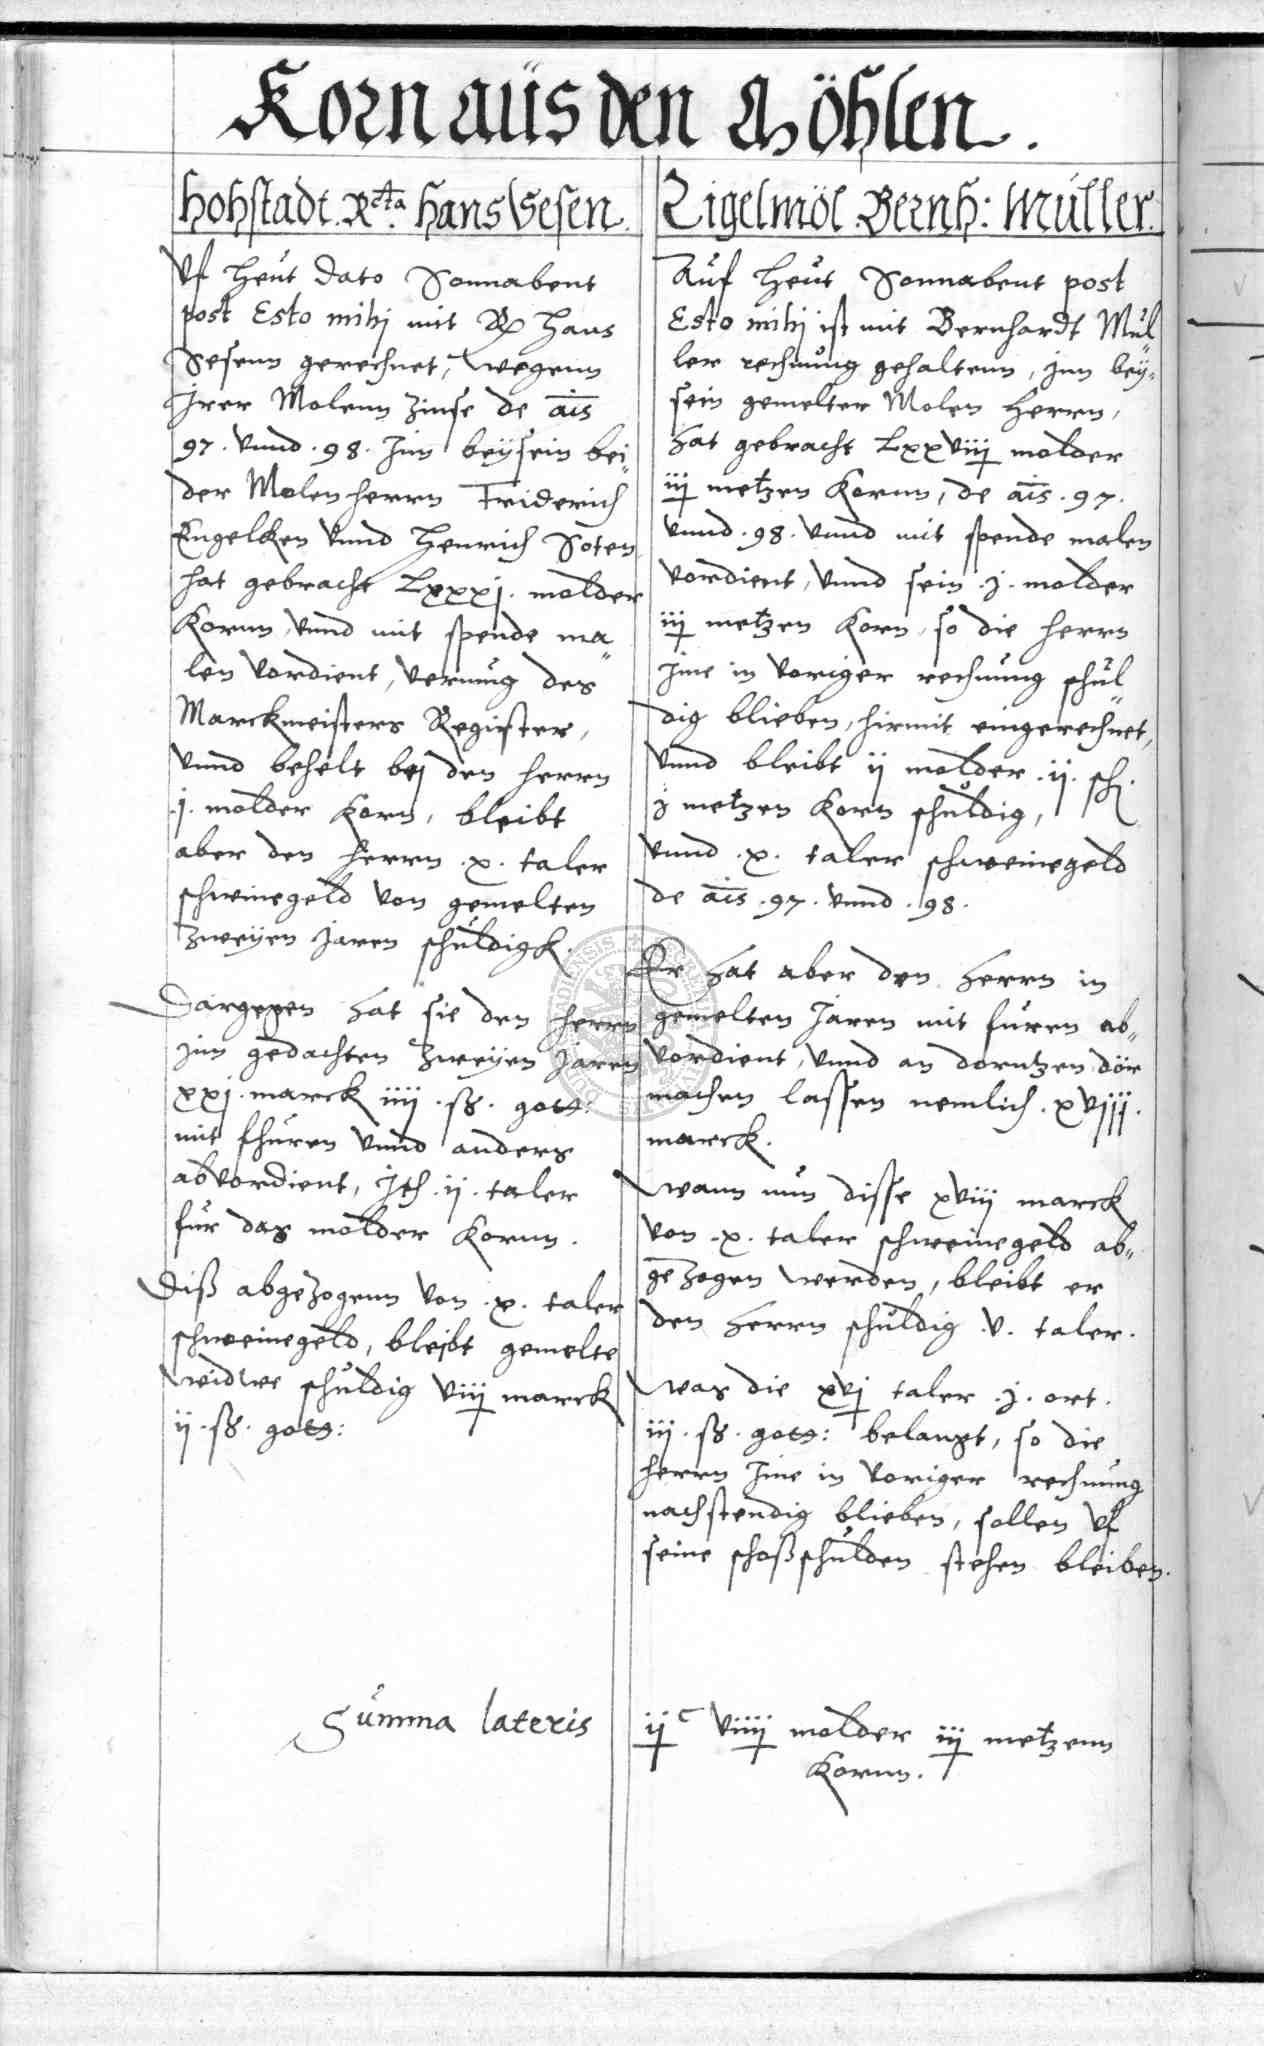 Korn aüs den Möhlen.
Hohstadt. Rcta Hans Sesen.
Vf heut dato Sonnabent
post Esto mihj mit Rcta Hans
Sesenn gerechnet, wegenn
Jrer Molenn Zinse de aīs
97. vnnd .98. Jnn beysein bei„
der Molenherrn Friderich
Engelken vnnd Henrich Soten
hat gebracht Lxxxj. molder
Kornn, vnnd mit spende ma„
len vordient, vermug des
Marckmeisters Register,
vnnd behelt bej den herrn
.j. molder Korn, bleibt
aber den herrn .x. taler
schweinegeld von gemelten
Zweyen Jaren schuldigk.
Dargegen hat sie den herrn
jnn gedachten Zweyen Jaren
xxj. marck iiij .ß. gott:
mit fhuren vnnd anders
abvordient, Jtem .ij. taler
fur das molder Kornn.
Diß abgezogenn von .x. taler
schweinegeld, bleibt gemelte
widwe schuldig viij marck
ij .ß. gott:
Zigelmöl. Bernh: Müller.
Auf heut Sonnabent post
Esto mihj ist mit Bernhardt Mul„
ler rechnung gehaltenn, jnn bey„
sein gemelter Molen herrn,
hat gebracht Lxxviij molder
iij metzen Kornn, de aīs .97.
vnnd .98. vnnd mit spende malen
vordient, vnnd sein .j. molder
iij metzen Korn, so die herrn
Jme in voriger rechnung schul„
dig blieben, hirmit eingerechnet,
vnnd bleibt ij molder .ij. sch.
j metzen Korn schuldig,
vnnd .x. taler schweinegeld
de aīs .97. vnnd .98.
Er hat aber den herrn in
gemelten Jaren mit furen ab„
vordient, vnnd an dorntzen dör
machen lassen nemlich .xviij.
marck.
Wann nun disse xviij marck
von .x. taler schweinegeld ab„
gezogen werden, bleibt er
den herrn schuldig .v. taler.
Was die xvj taler .j. ort.
iij .ß. gott: belangt, so die
herrn Jme in voriger rechnung
nachstendig blieben, sollen vf
seine schoßschulden stehen bleiben.
Summa lateris
ijc viiij molder iij metzenn
Kornn.